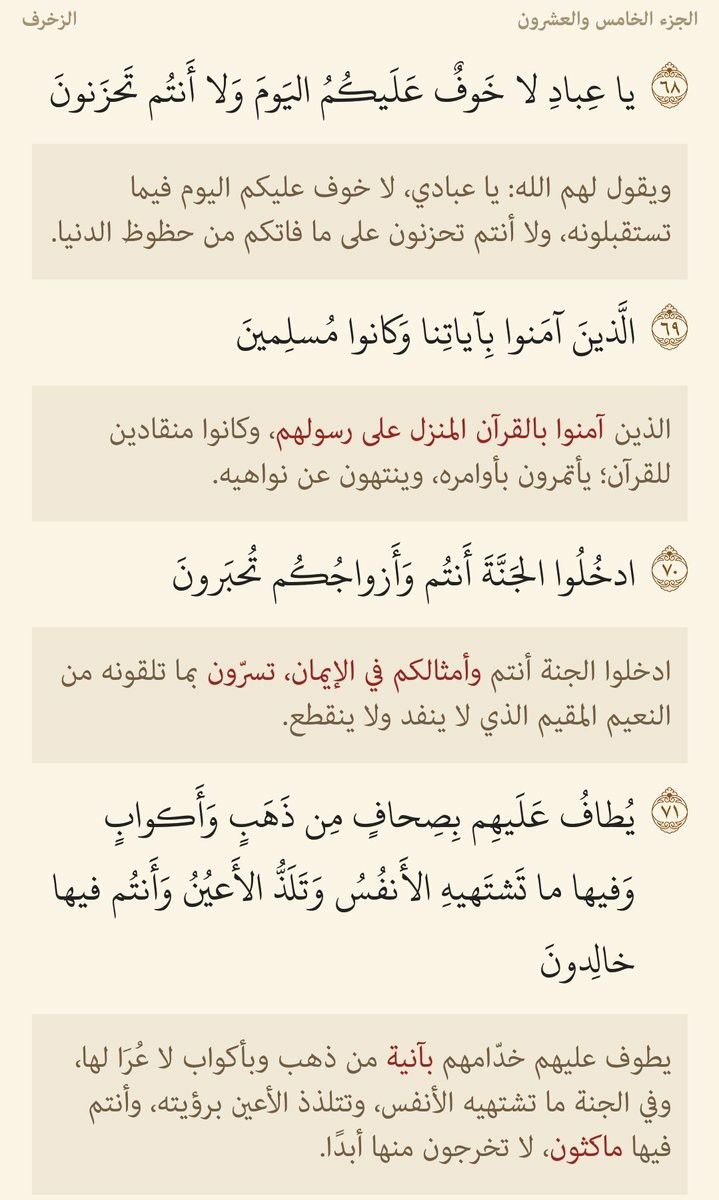 الجزء الخامس والعشرون
الزخرف
٦٨ يا عِبادِ لا خَوفٌ عَلَيكُمُ اليَومَ وَلا أَنتُم تَحزَنونَ
ويقول لهم الله: يا عبادي، لا خوف عليكم اليوم فيما
تستقبلونه، ولا أنتم تحزنون على ما فاتكم من حظوظ الدنيا.
٦٩ الَّذينَ آمَنوا بِآياتِنا وَكانوا مُسلِمينَ
الذين آمنوا بالقرآن المنزل على رسولهم، وكانوا منقادين
للقرآن؛ يأتمرون بأوامره، وينتهون عن نواهيه.
٧٠ ادخُلُوا الجَنَّةَ أَنتُم وَأَزواجُكُم تُحبَرونَ
ادخلوا الجنة أنتم وأمثالكم في الإيمان، تسرّون بما تلقونه من
النعيم المقيم الذي لا ينفد ولا ينقطع.
٧١ يُطافُ عَلَيهِم بِصِحافٍ مِن ذَهَبٍ وَأَكوابٍ
وَفيها ما تَشتَهيهِ الأَنفُسُ وَتَلَذُّ الأَعيُنُ وَأَنتُم فيها
خالِدونَ
يطوف عليهم خدّامهم بآنية من ذهب وبأكواب لا عُرَا لها،
وفي الجنة ما تشتهيه الأنفس، وتتلذذ الأعين برؤيته، وأنتم
فيها ماكثون، لا تخرجون منها أبدًا.